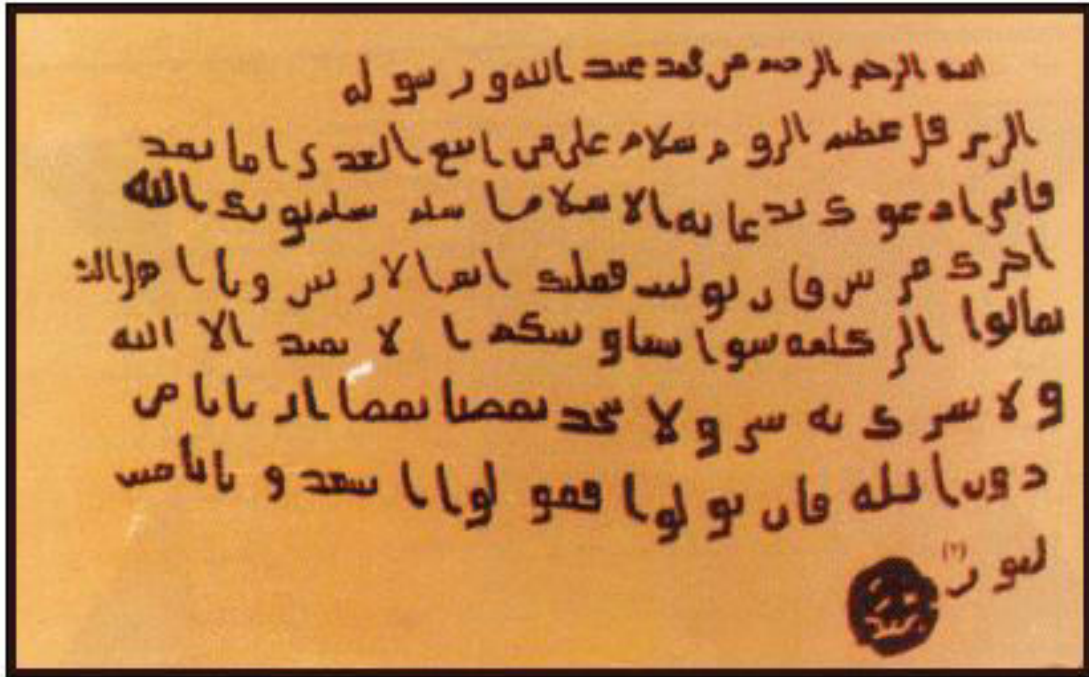 الله الرحمن الرحيم من محمد عبد الله ورسوله
الى هرقل عظيم الروم سلام على من اتبع الهدى اما بعد
فانى ادعوك بدعاية الاسلام اسلم تسلم يوتك الله
اجرك مرتين فان توليت فعليك اثم الاريسين ويا اهل الكتب
تعالوا الى كلمة سوا بيننا وبينكم الا نعبد الا الله
ولا نشرك به شى ولا يتخذ بعضنا بعضا اربابا من
دون الله فان تولوا فقولوا اشهدوا بانا مسلمون
(٢)